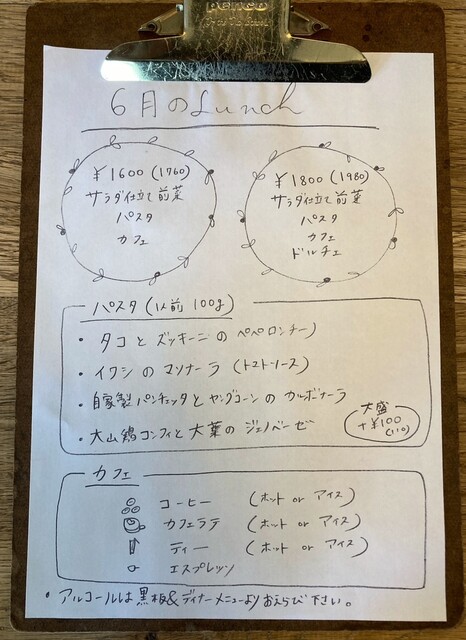 penco
6月のLunch
¥1600(1760)
サラダ仕立て前菜
パスタ
カフェ
¥1800(1980)
サラダ仕立て前菜
パスタ
カフェ
ドルチェ
パスタ(1人前 100g)
・タコとズッキーニのペペロンチーノ
・イワシのマリナーラ(トマトソース)
・自家製パンチェッタとヤングコーンのカルボナーラ
・大山鶏コンフィと大葉のジェノベーゼ
大盛
+¥100
(110)
カフェ
コーヒー (ホット or アイス)
カフェラテ (ホット or アイス)
ティー (ホット or アイス)
エスプレッソ
・アルコールは黒板&ディナーメニューよりおえらび下さい。